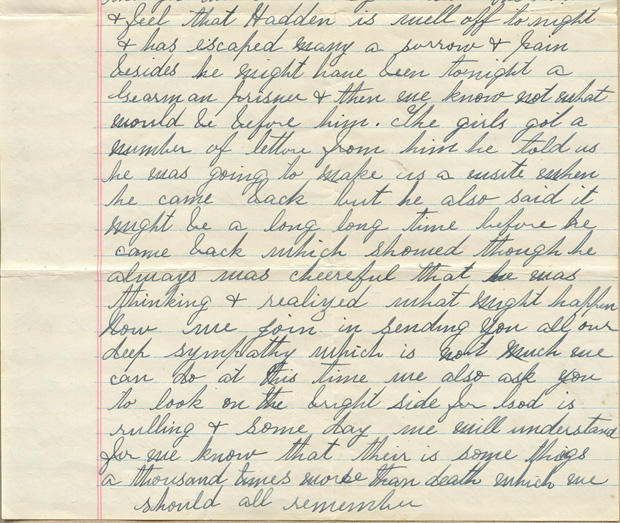 & feel that Hadden is well off tonight
& has escaped many a sorrow & pain
besides he might have been tonight a
Gearman prisner & then we know not what
would be before him. The girls got a
number of letters from him he told us
he was going to make us a visite when
he came back but he also said it
might be a long long time before he
came back which showed though he
always was cheereful that he was
thinking & realized what might happen
Now we join in sending you all our
deep sympathy which is not much we
can do at this time we also ask you
to look on the bright side for God is
rulling & some day we will understand
for we know that their is some things
a thousand times worse than death which we
should all remember